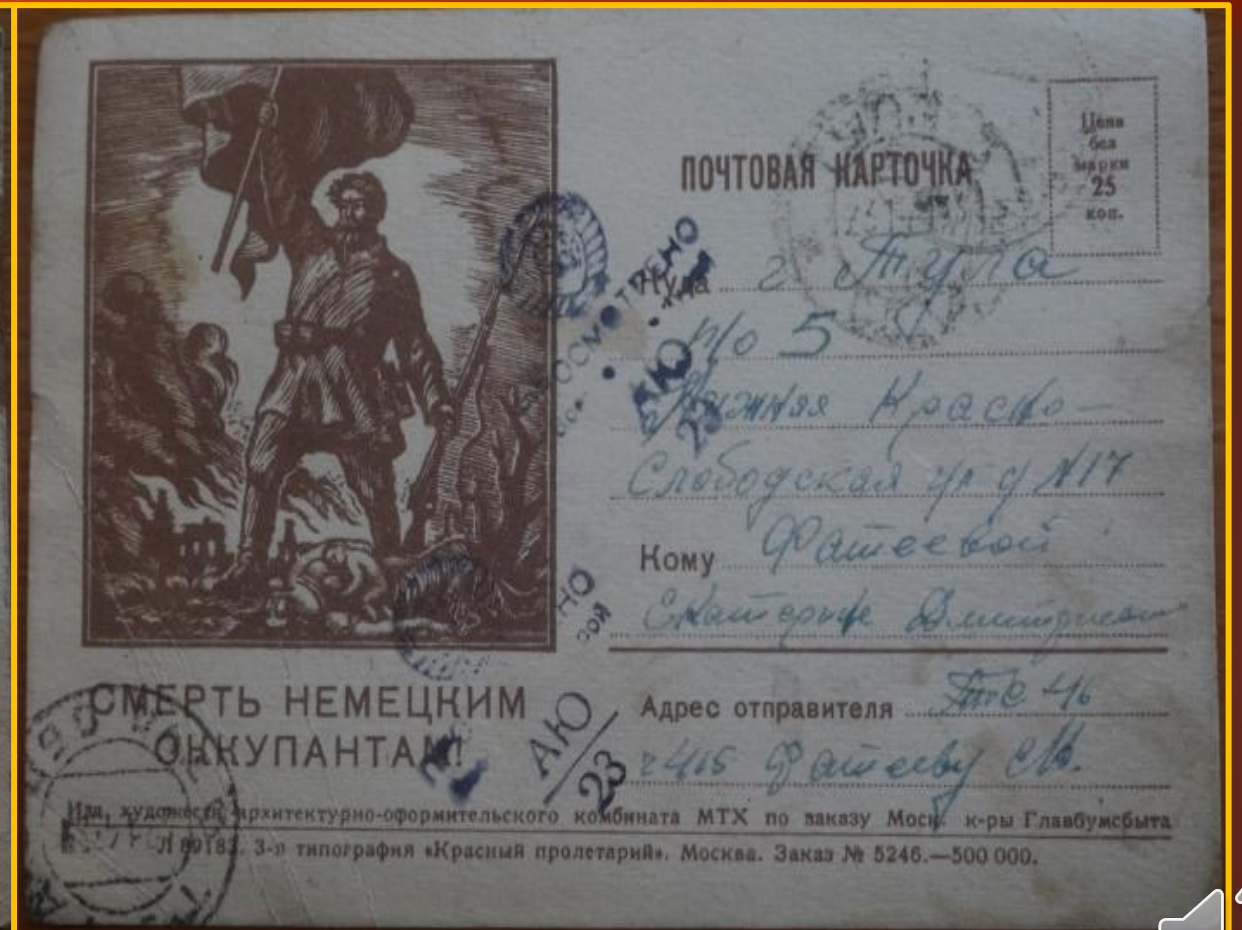 ПОЧТОВАЯ КАРТОЧКА
Цена
без
марки
25
коп.
Куда г Тула
п/о 5
Нижняя Красно-
Слободская ул д №17
Кому Фатеевой
Екатерине
Адрес отправителя
Фатееву
ПРОСМОТРЕНО
АЮ
23
НО
РОЙ
АЮ
23
СМЕРТЬ НЕМЕЦКИМ
ОККУПАНТАМ!
Изд. художеств. архитектурно-оформительского комбината МТХ по заказу Моск. к-ры Главбумсбыта
Л 80183. 3-я типография «Красный пролетарий». Москва. Заказ № 5246.—500 000.